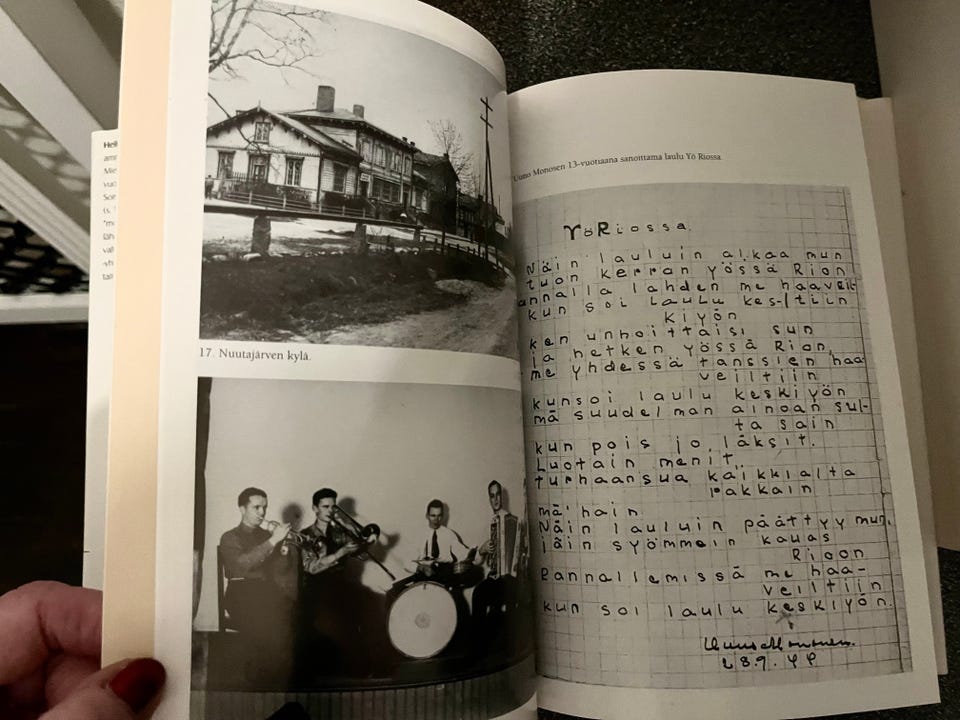 Heik
17. Nuutajärven kylä.
Uuno Monosen 13-vuotiaana sanoittama laulu Yö Riossa.
YöRiossa.
Näin lauluin alkaa mun
tuon kerran yössä Rion
annalla lahden me haaveil-
kun soi laulu kes-ltiin
kiyön
ken unhoittaisi sun
ja hetken yössä Rion,
me yhdessä tanssien haa-
veiltiin
kunsoi laulu keskiyön
mä suudelman ainoan sul-
ta sain
kun pois jo läksit.
Luotain menit
turhaansua kaikkialta
rakkain
mä'hain
Näin lauluin päättyy mun,
jäin syömmein kauas
Rioon
Rannallemissä me haa-
veiltiin
kun soi laulu keskiyön.
Uuno Mononen.
28.9.44